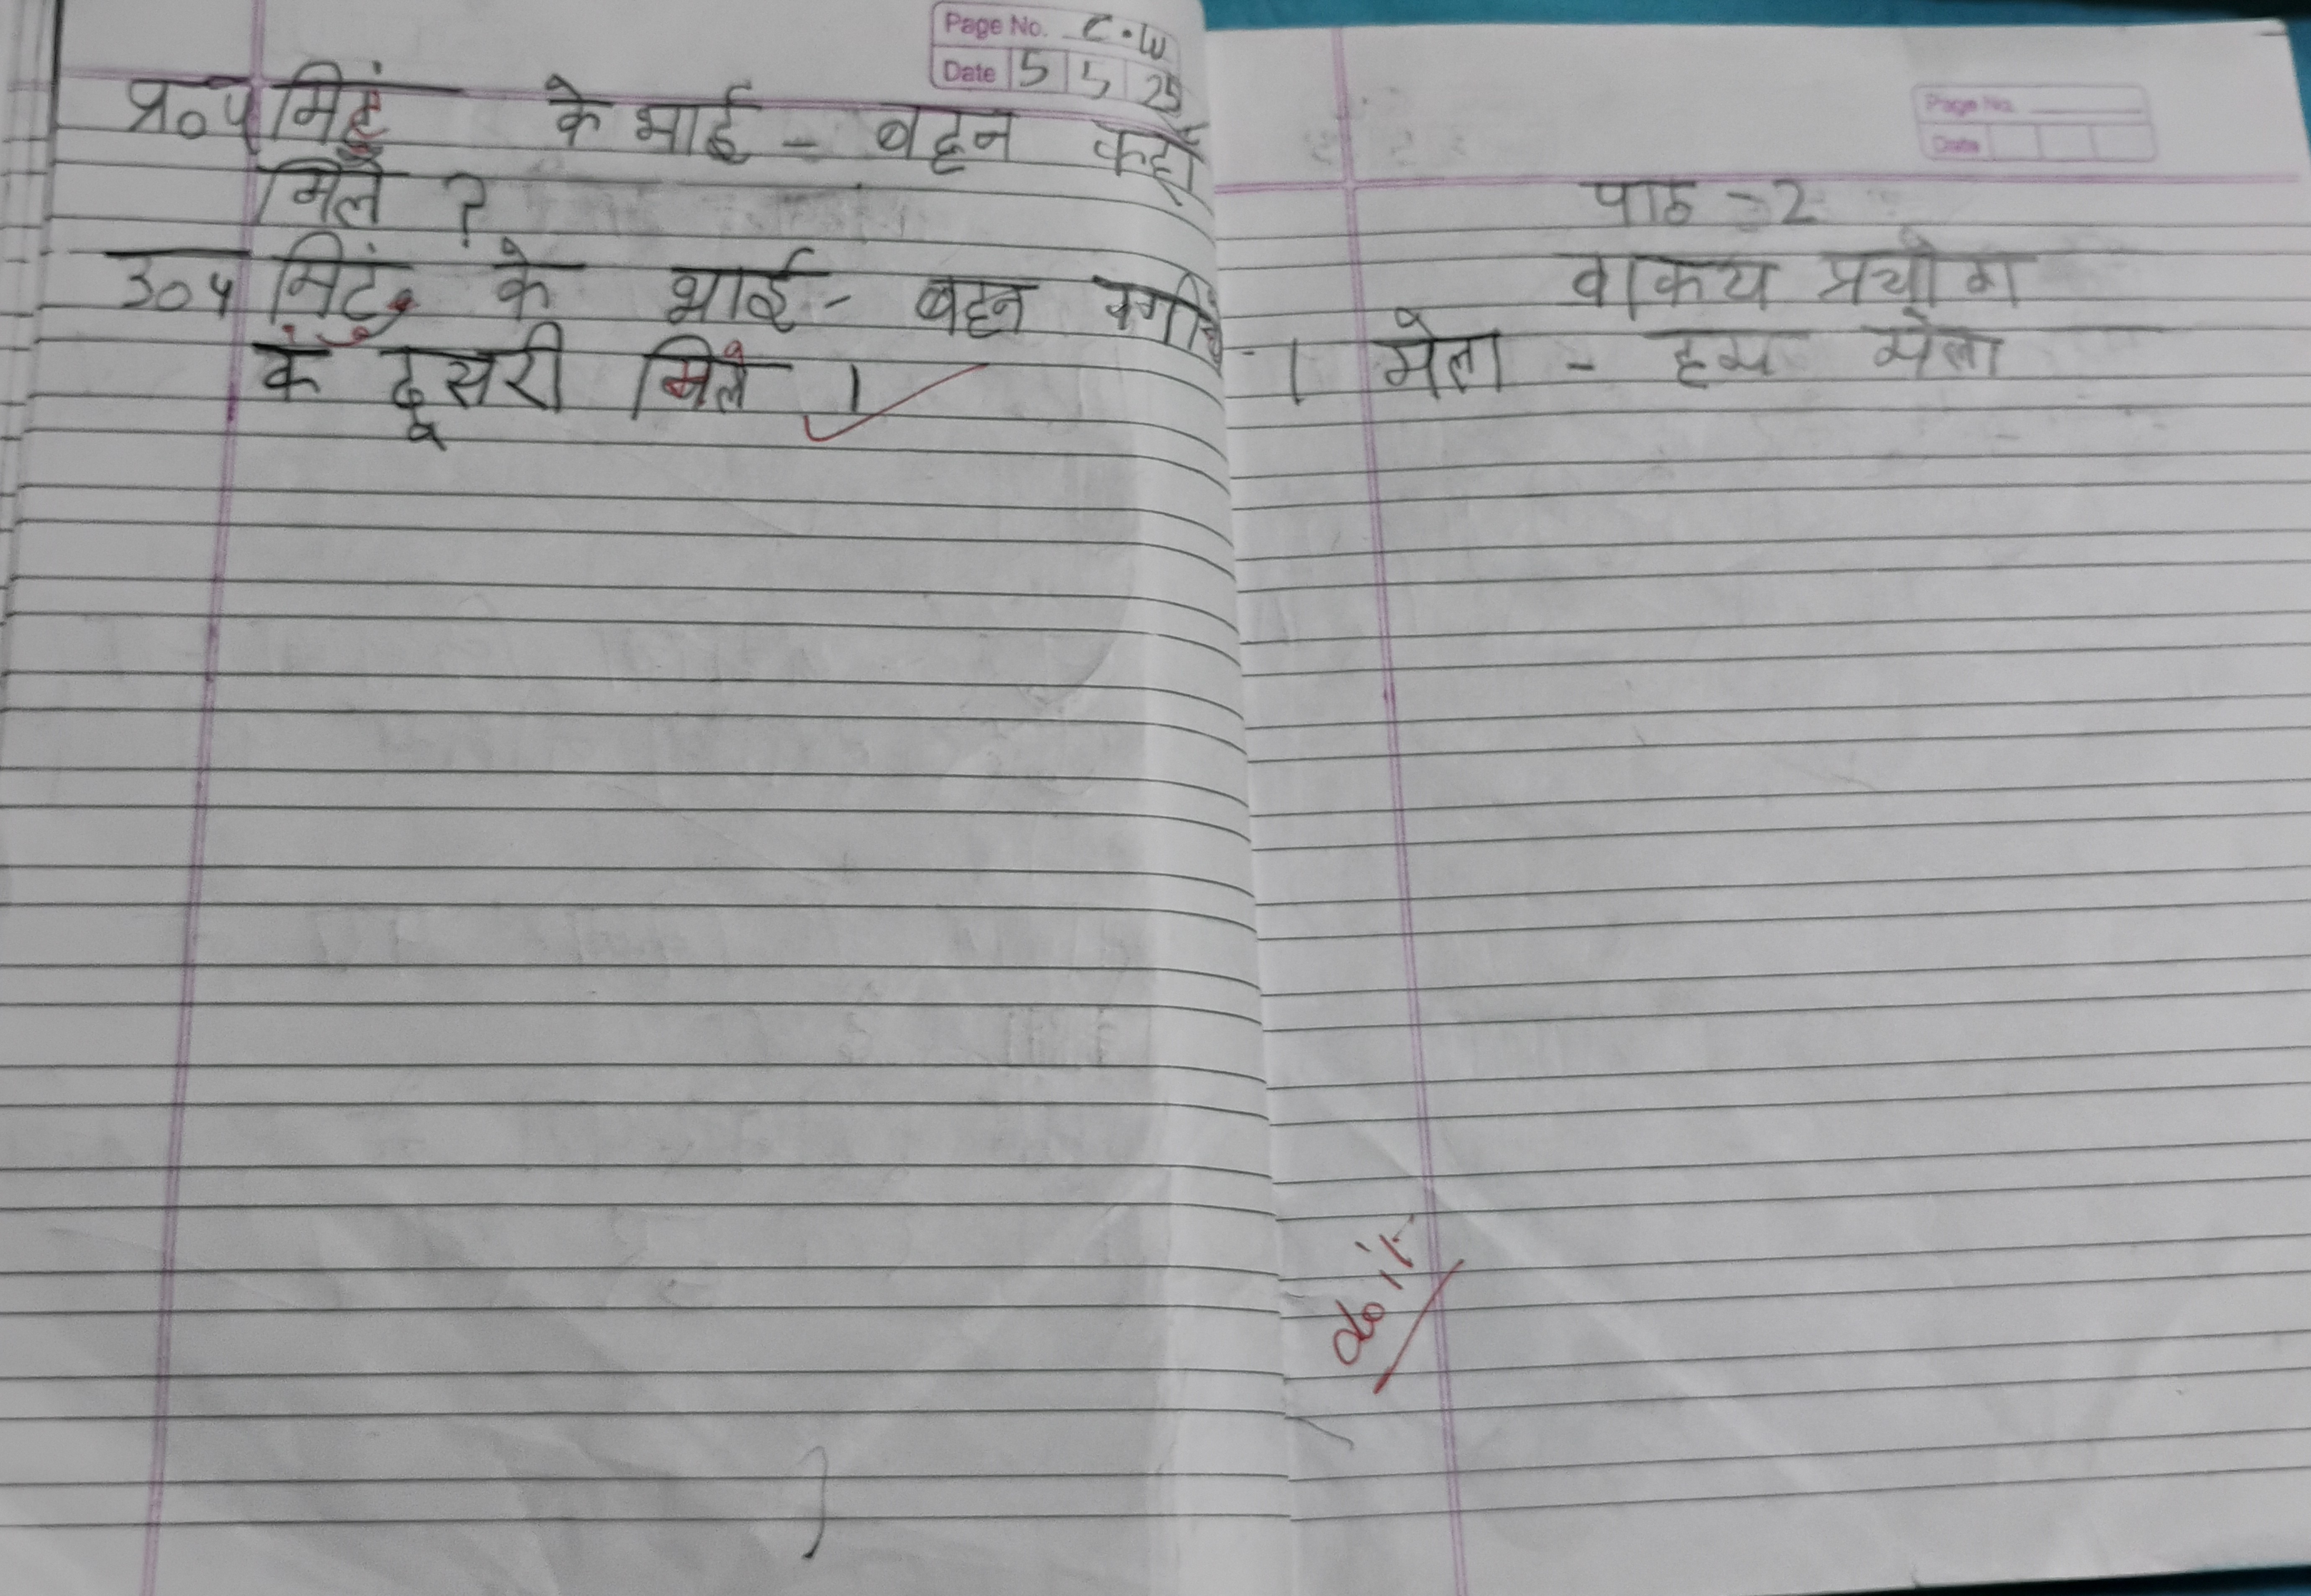 Page No. C.W
Date 5 5 25
प्र०५ मिटूं के भाई - बहन कहाँ
मिले ?
उ०५ मिंटू के भाई - बहन बगीचे
के दूसरी मिले ।
Page No.
Date
पाठ - 2
वाकय प्रयोग
1 मेला - हम मेला
do it